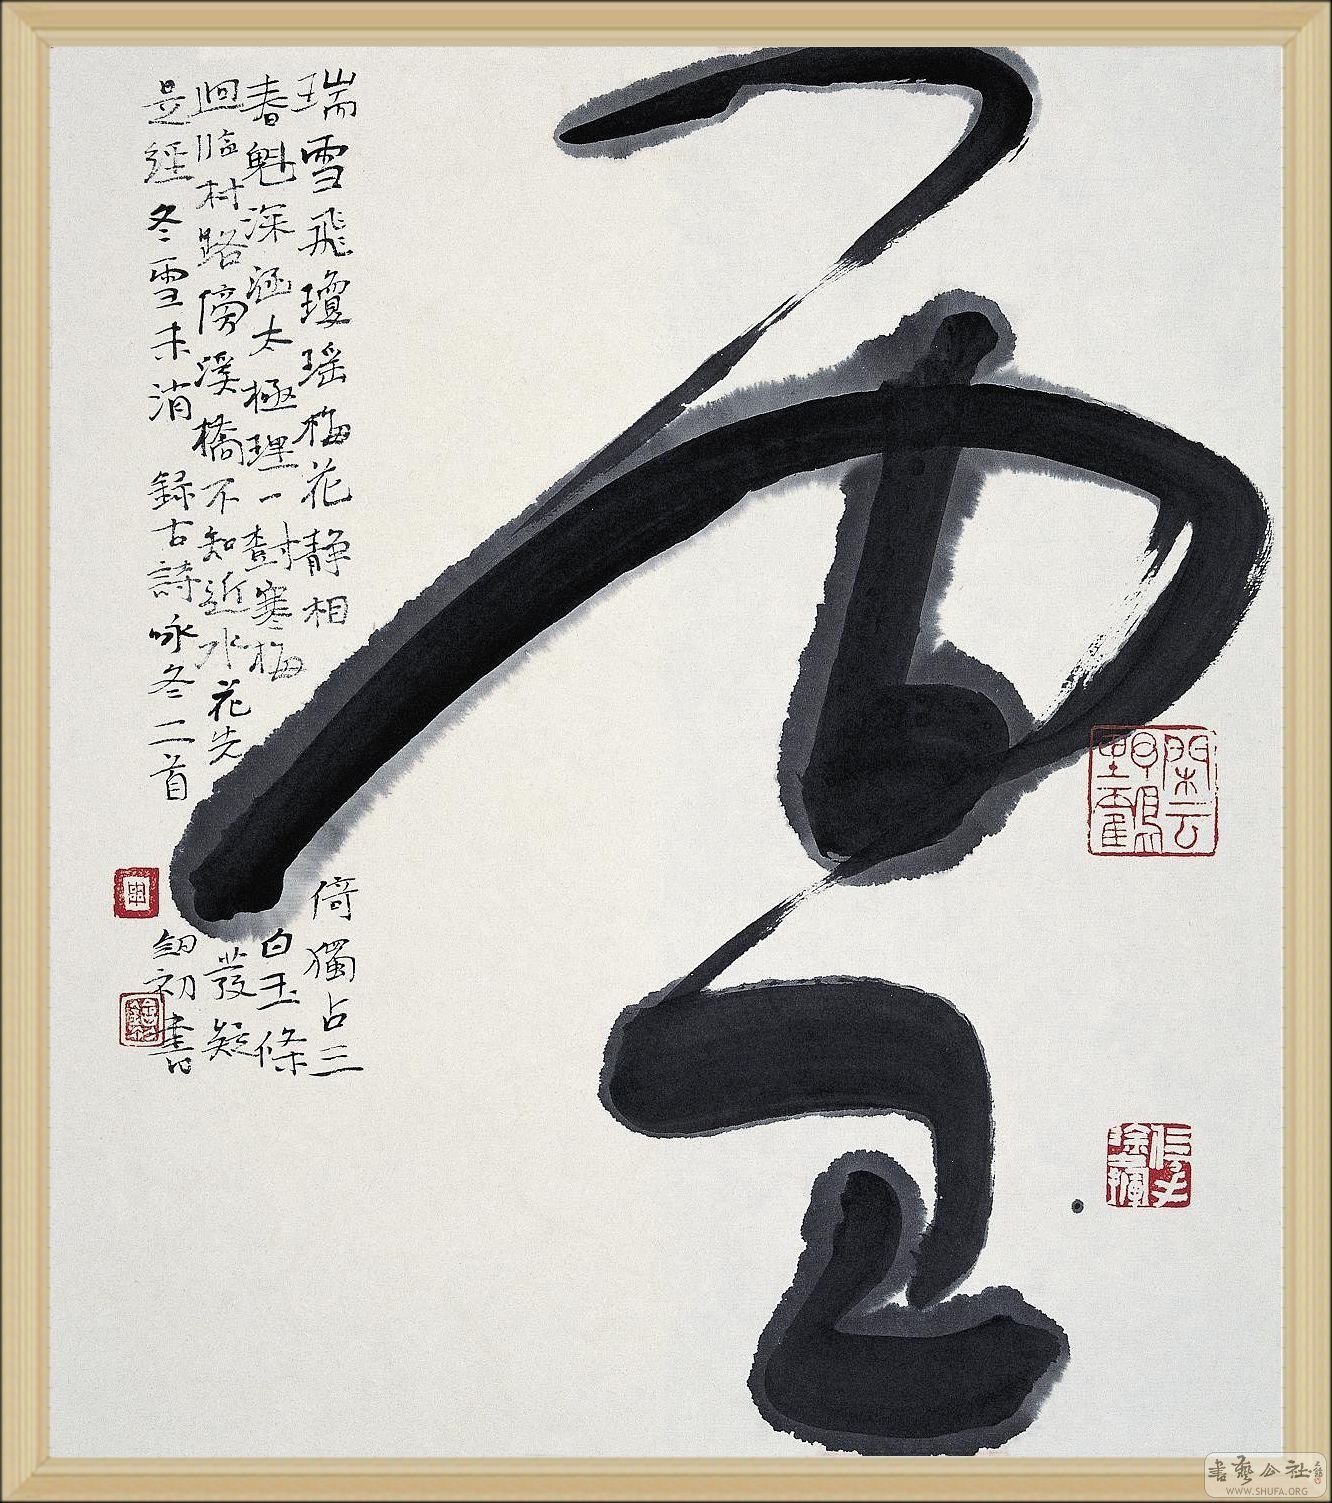 雪
瑞雪飛瓊瑶梅花静相倚獨占三
春魁深涵太極理一樹寒梅白玉條
迥臨村路傍溪橋不知近水花先發疑
是經冬雪未消 録古詩咏冬二首 初書
閑云野鶴
書藝公社
WWW.SHUFA.ORG